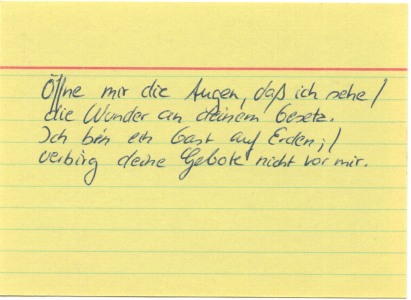 Öffne mir die Augen, daß ich sehe /
die Wunder an deinem Gesetz.
Ich bin ein Gast auf Erden; /
verbirg deine Gebote nicht vor mir.